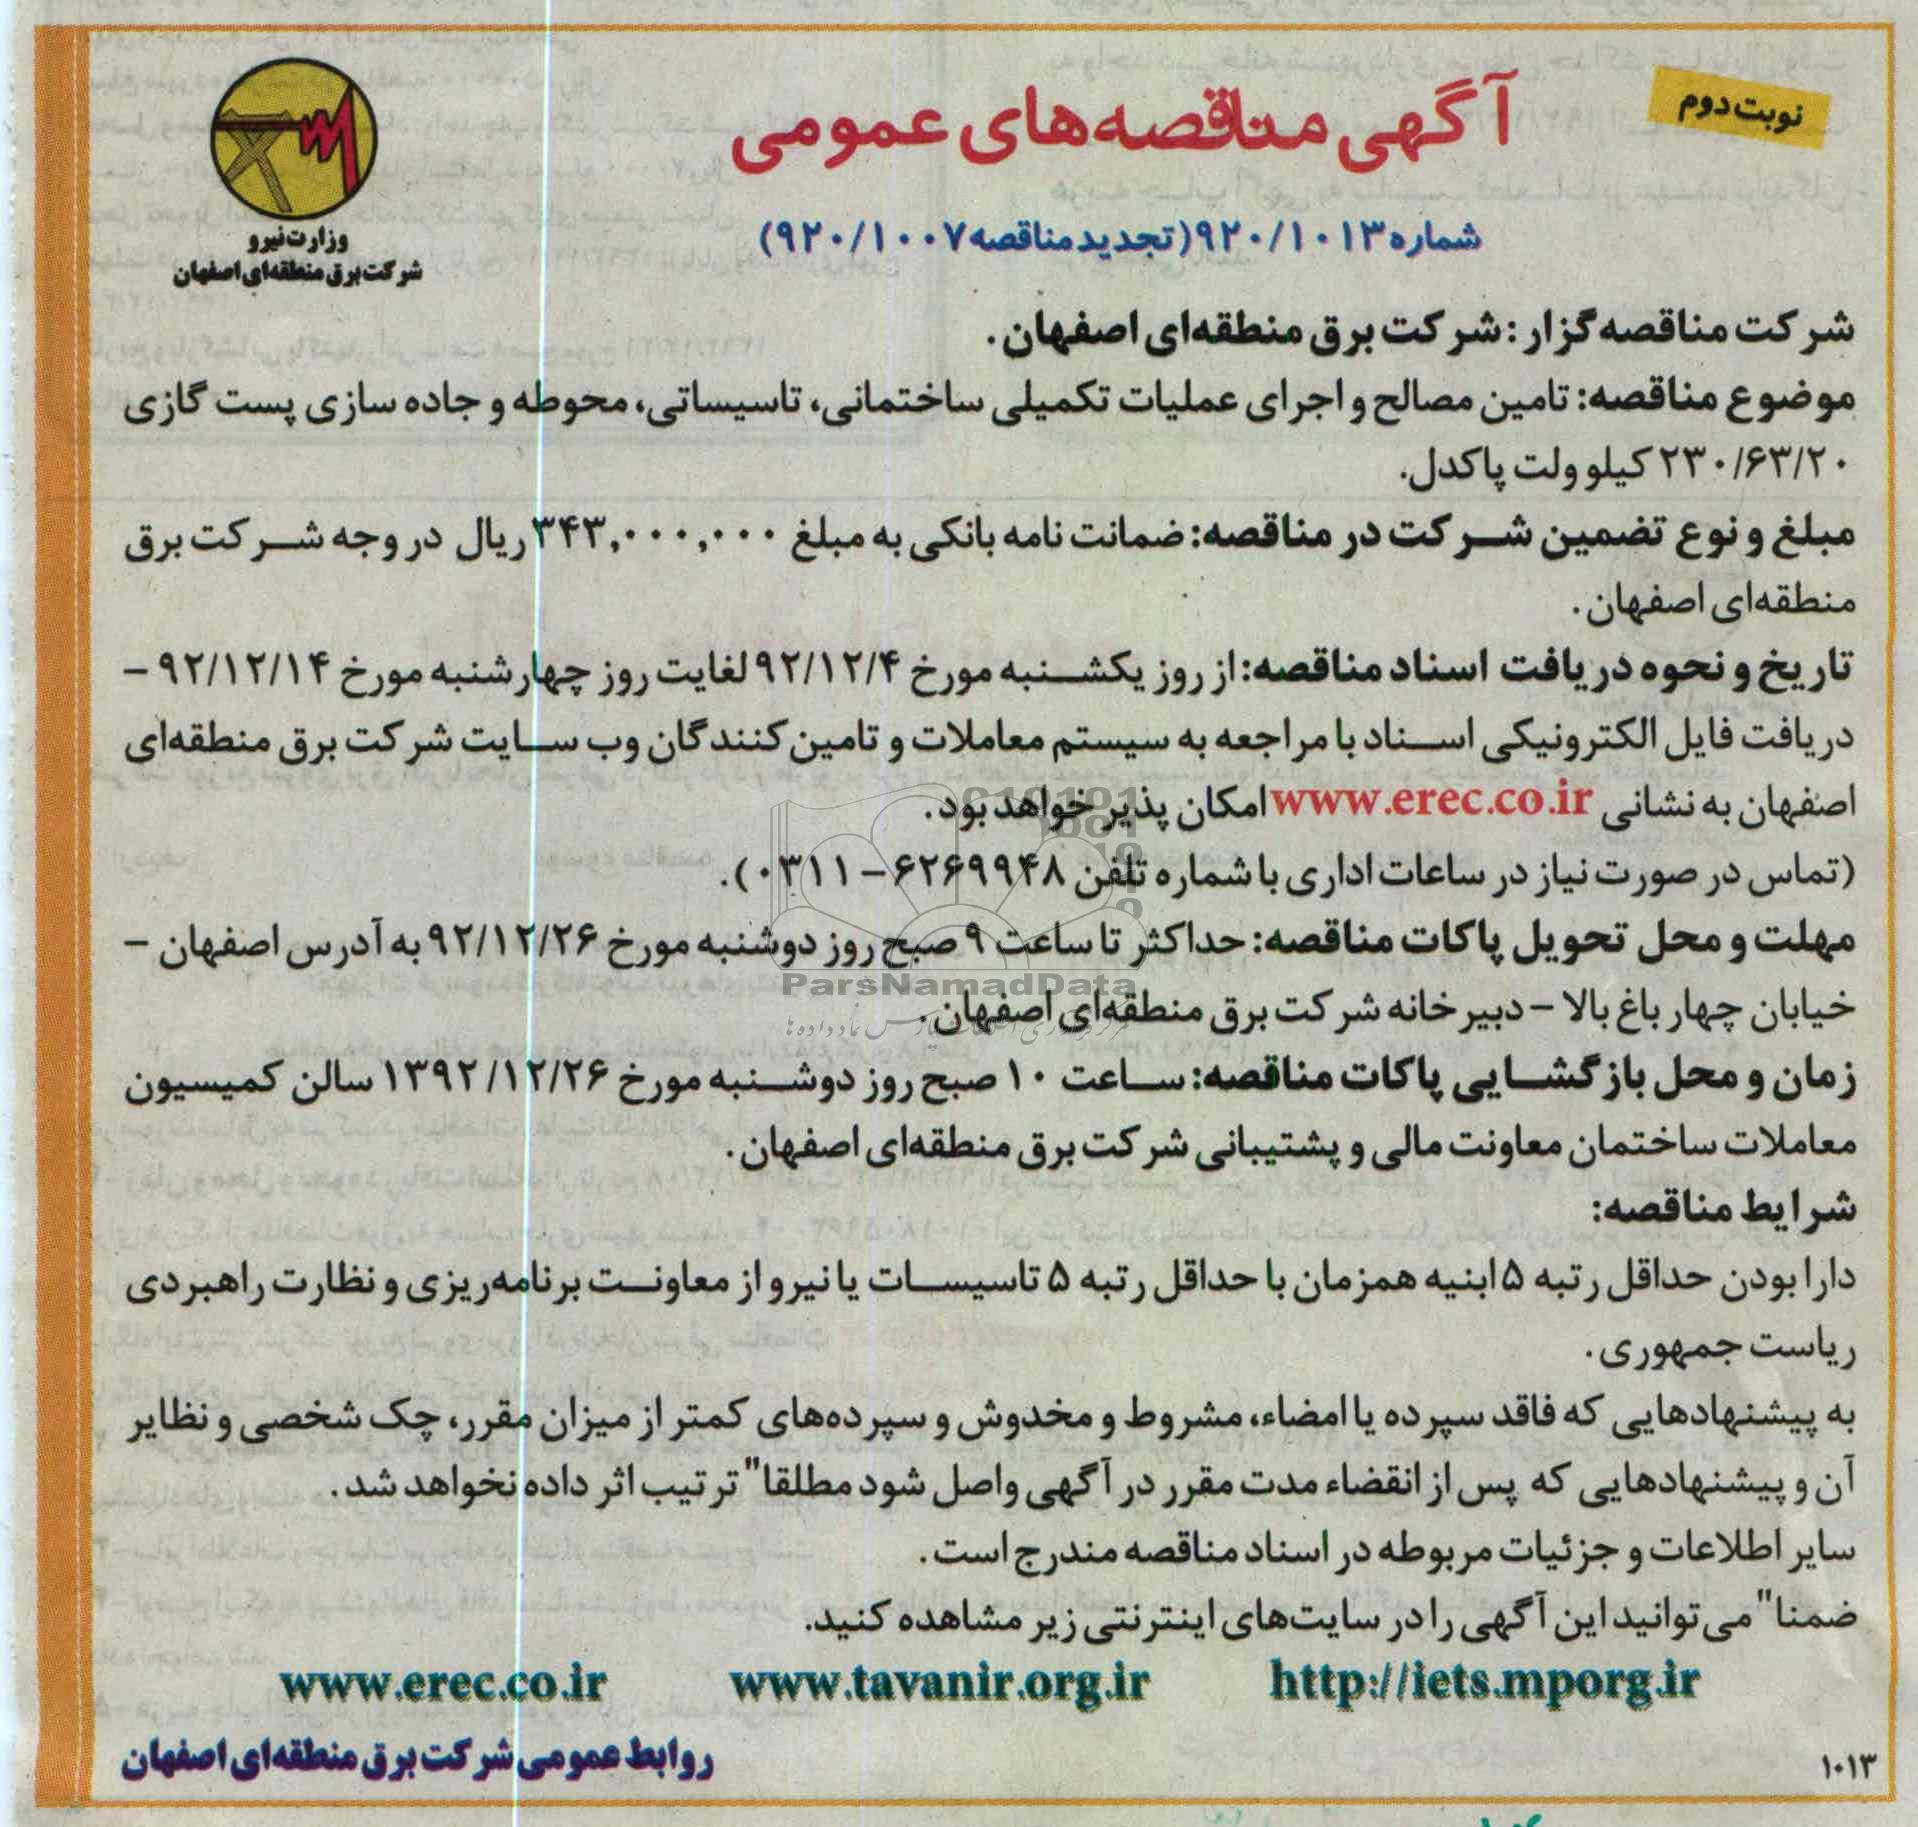 نوبت دوم
آگهی مناقصه‌های عمومی
شماره ۹۲۰/۱۰۱۳ (تجدید مناقصه ۹۲۰/۱۰۰۷)
وزارت نیرو
شرکت برق منطقه‌ای اصفهان
شرکت مناقصه گزار : شرکت برق منطقه‌ای اصفهان .
موضوع مناقصه: تامین مصالح و اجرای عملیات تکمیلی ساختمانی، تاسیساتی، محوطه و جاده سازی پست گازی
۲۳۰/۶۳/۲۰ کیلو ولت پاکدل.
مبلغ و نوع تضمین شرکت در مناقصه: ضمانت نامه بانکی به مبلغ ۳۴۳,۰۰۰,۰۰۰ ریال در وجه شرکت برق
منطقه‌ای اصفهان .
تاریخ و نحوه دریافت اسناد مناقصه: از روز یکشنبه مورخ ۹۲/۱۲/۴ لغایت روز چهارشنبه مورخ ۹۲/۱۲/۱۴ –
دریافت فایل الکترونیکی اسناد با مراجعه به سیستم معاملات و تامین کنندگان وب سایت شرکت برق منطقه‌ای
اصفهان به نشانی www.erec.co.ir امکان پذیر خواهد بود .
(تماس در صورت نیاز در ساعات اداری با شماره تلفن ۶۲۶۹۹۴۸ – ۰۳۱۱).
مهلت و محل تحویل پاکات مناقصه: حداکثر تا ساعت ۹ صبح روز دوشنبه مورخ ۹۲/۱۲/۲۶ به آدرس اصفهان –
خیابان چهار باغ بالا – دبیرخانه شرکت برق منطقه‌ای اصفهان .
زمان و محل بازگشایی پاکات مناقصه: ساعت ۱۰ صبح روز دوشنبه مورخ ۱۳۹۲/۱۲/۲۶ سالن کمیسیون
معاملات ساختمان معاونت مالی و پشتیبانی شرکت برق منطقه‌ای اصفهان .
شرایط مناقصه:
دارا بودن حداقل رتبه ۵ ابنیه همزمان با حداقل رتبه ۵ تاسیسات یا نیرو از معاونت برنامه‌ریزی و نظارت راهبردی
ریاست جمهوری .
به پیشنهادهایی که فاقد سپرده یا امضاء، مشروط و مخدوش و سپرده‌های کمتر از میزان مقرر، چک شخصی و نظایر
آن و پیشنهادهایی که پس از انقضاء مدت مقرر در آگهی واصل شود مطلقا" ترتیب اثر داده نخواهد شد .
سایر اطلاعات و جزئیات مربوطه در اسناد مناقصه مندرج است .
ضمنا" می‌توانید این آگهی را در سایت‌های اینترنتی زیر مشاهده کنید.
http://iets.mporg.ir www.tavanir.org.ir www.erec.co.ir
روابط عمومی شرکت برق منطقه‌ای اصفهان
۱۰۱۳
ParsNamadData